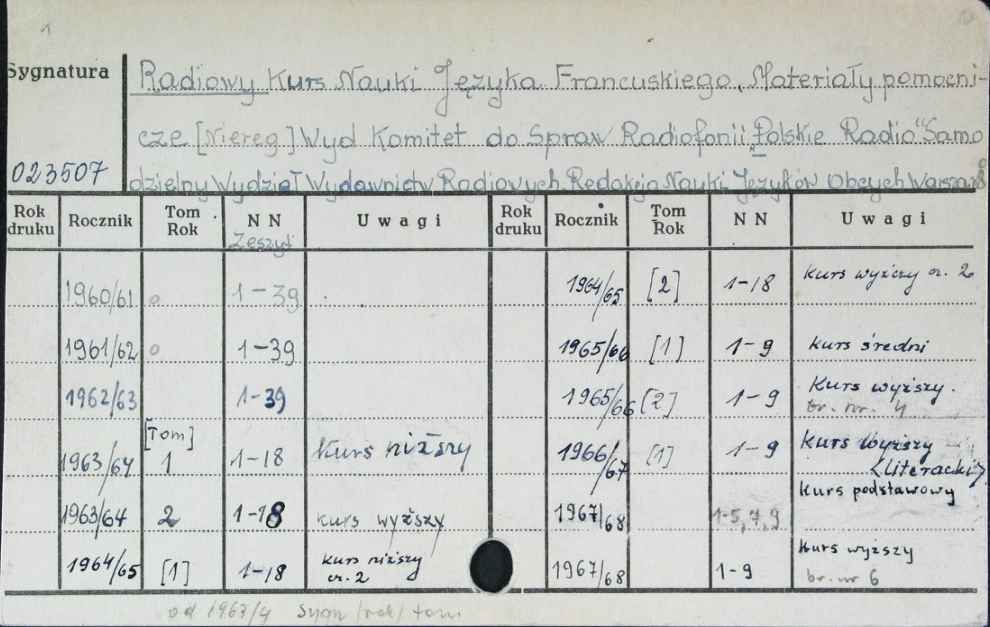 1
Sygnatura
Radiowy Kurs Nauki Języka Francuskiego. Materiały pomocni-
cze [Niereg.] Wyd Komitet do Spraw Radiofonii „Polskie Radio" Samo
023507
dzielny Wydział Wydawnictw Radiowych. Redakcja Nauki Języków Obcych Warsza
Rok druku Rocznik Tom Rok NN Zeszyt Uwagi Rok druku Rocznik Tom Rok NN Uwagi
1960/61 0 1-39 1964/65 [2] 1-18 Kurs wyższy cz. 2
1961/62 0 1-39 1965/66 [1] 1-9 kurs średni
1962/63 1-39 1965/66 [2] 1-9 Kurs wyższy. br. nr. 4
1963/64 [Tom] 1 1-18 Kurs niższy 1966/67 [1] 1-9 Kurs wyższy <Literacki>
1963/64 2 1-18 kurs wyższy 1967/68 1-5,7,9 Kurs podstawowy
1964/65 [1] 1-18 kurs niższy cz. 2 1967/68 1-9 Kurs wyższy br. nr 6
od 1963/4 Sygn /rok/ tom